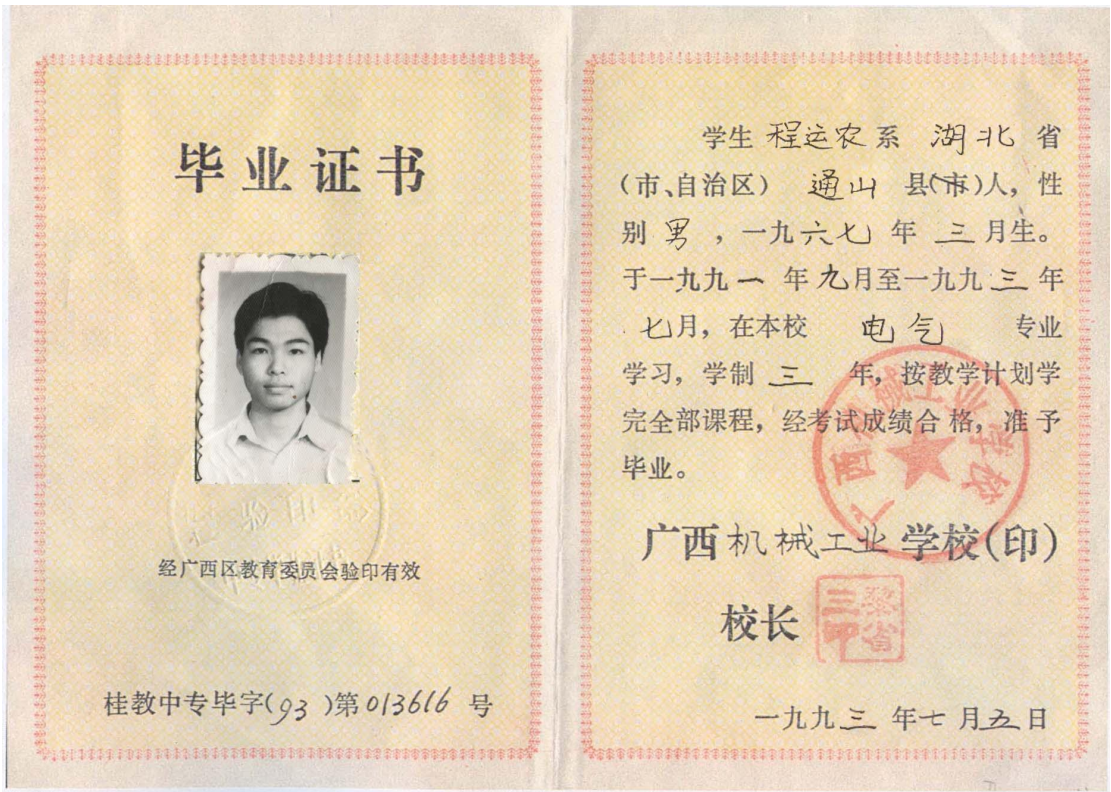 毕业证书
经广西区教育委员会验印有效
桂教中专毕字(93)第013616号
学生 程运农 系 湖北 省
(市、自治区) 通山 县(市)人，性
别 男 ，一九六七年 三月生。
于一九九一年九月至一九九三年
七月，在本校 电气 专业
学习，学制 三 年，按教学计划学
完全部课程，经考试成绩合格，准予
毕业。
广西机械工业学校
广西机械工业学校(印)
校长
一九九三年七月五日